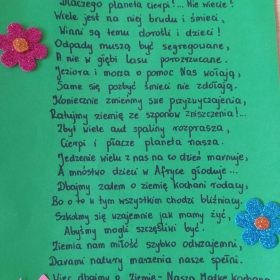 Dlaczego planeta cierpi?... Nie wiecie!
Wiele jest na niej brudu i śmieci,
Winni są temu dorośli i dzieci!
Odpady muszą być segregowane,
A nie w głębi lasu porozrzucane.
Jeziora i morza o pomoc Nas wołają,
Same się pozbyć śmieci nie zdołają.
Koniecznie zmieńmy swe przyzwyczajenia,
Ratujmy ziemię ze szponów zniszczenia!...
Zbyt wiele aut spaliny rozprasza,
Cierpi i płacze planeta nasza.
Jedzenie wielu z nas na co dzień marnuje,
A mnóstwo dzieci w Afryce głoduje...
Dbajmy zatem o ziemię kochani rodacy,
Bo o to k tym wszystkim chodzi bliźniacy.
Szkolmy się wzajemnie jak mamy żyć,
Abyśmy mogli szczęśliwi być.
Ziemia nam miłość szybko odwzajemni,
Darami natury marzenia nasze spełni.
Więc dbajmy o Ziemię - Naszą Matkę kochaną